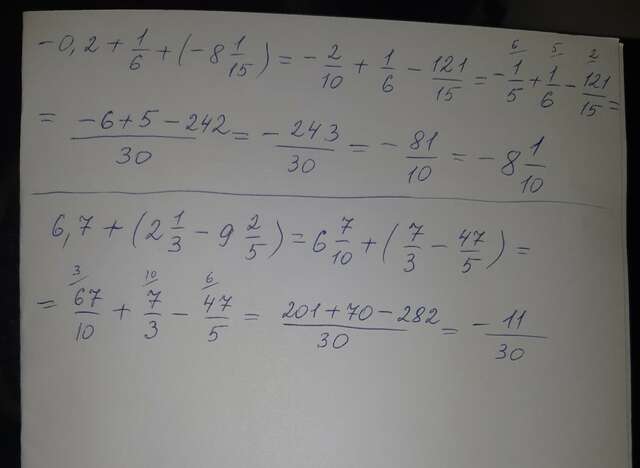 -0,2 + 1/6 + (-8 1/15) = -2/10 + 1/6 - 121/15 = -1/5 (6 + 1/6 (5 - 121/15 (2 =
= (-6+5-242)/30 = -243/30 = -81/10 = -8 1/10
6,7 + (2 1/3 - 9 2/5) = 6 7/10 + (7/3 - 47/5) =
= 67/10 (3 + 7/3 (10 - 47/5 (6 = (201+70-282)/30 = -11/30